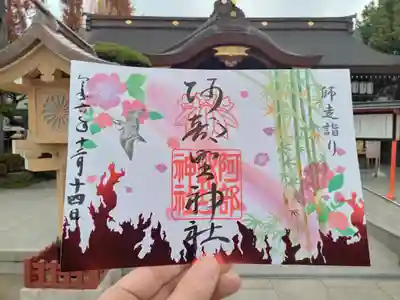 師走詣り
阿部野神社
阿部野神社
令和六年十二月十四日